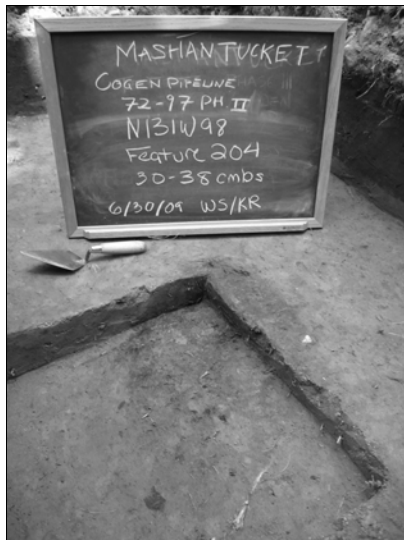 MASHANTUCKET
COGEN PIPELINE
72-97 PH II
N131W98
Feature 204
30-38 cmbs
6/30/09 WS/KR